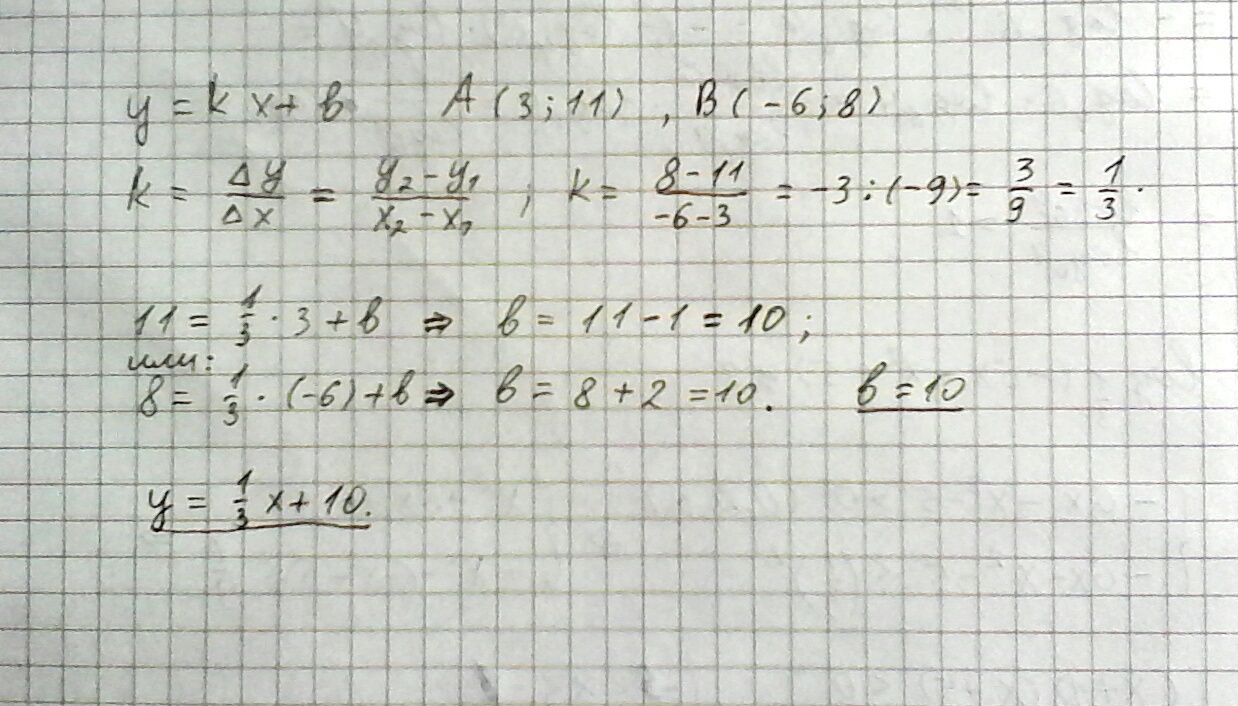 y = k x + b A (3; 11) , B (-6; 8)
k = Δy/Δx = y₂ - y₁/x₂ - x₁ ; k = 8 - 11/-6 - 3 = -3 : (-9) = 3/9 = 1/3 .
11 = 1/3 · 3 + b ⇒ b = 11 - 1 = 10 ;
или:
8 = 1/3 · (-6) + b ⇒ b = 8 + 2 = 10. b = 10
y = 1/3 x + 10.